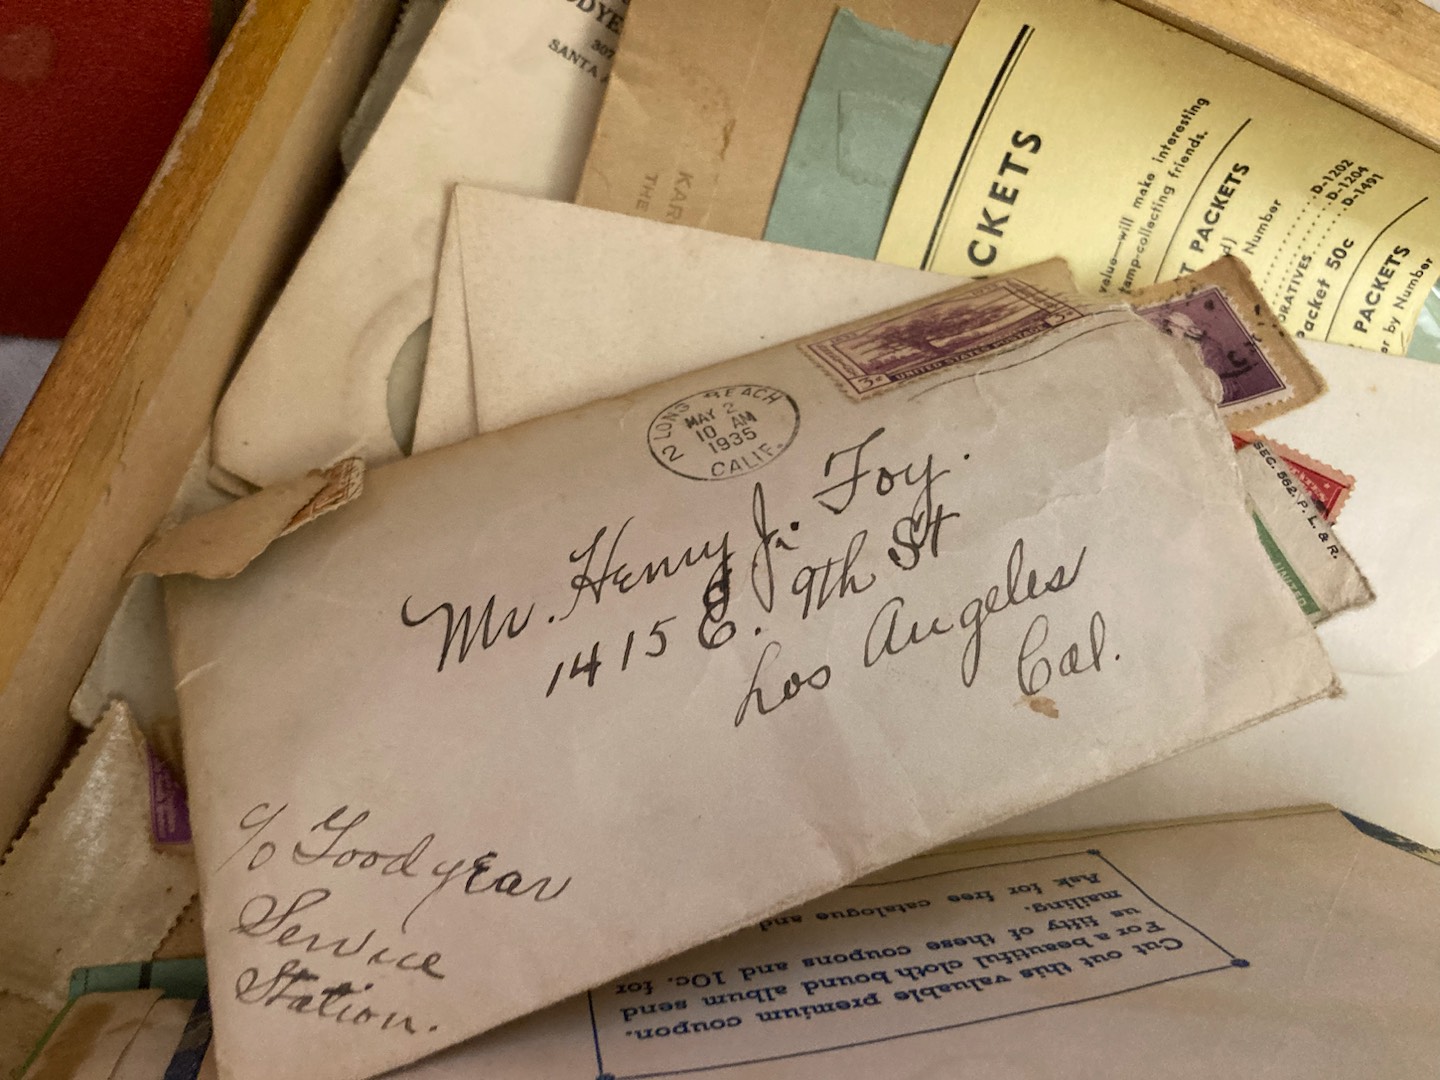 307
SANTA
KAR
THE
CKETS
value—will make interesting
stamp-collecting friends.
T PACKETS
Number
D-1202
D-1204
ORATIVES D-1491
Packet 50c
PACKETS
by Number
3c 3c
UNITED STATES POSTAGE
LONG BEACH
2
MAY 2
10 AM
1935
CALIF.
Mr. Henry J. Foy.
1415 E. 9th St
Los Angeles
Cal.
c/o Goodyear
Service
Station.
SEC. 562, P. L. & R.
UNITED
Cut out this valuable premium coupon.
For a beautiful cloth bound album send
us fifty of these coupons and 10c. for
mailing.
Ask for free catalogue and